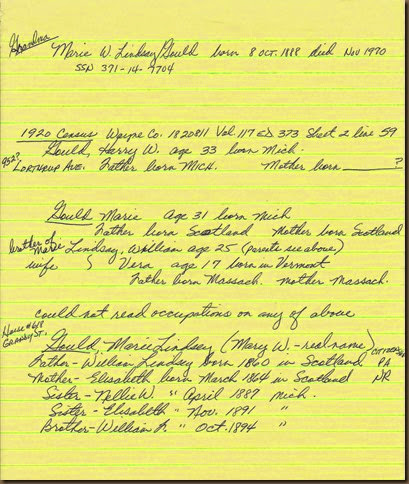 Grandma
Marie W. Lindsay Gould born 8 OCT. 1888 died Nov 1970
SSN 371-14-9704
1920 Census Wayne Co. 1820811 Vol. 117 ED 373 Sheet 2 line 59
Gould, Harry W. age 33 born Mich.
952? LORTHRUP AVE. Father born MICH. Mother born ____?
Gould Marie age 31 born Mich
Father born Scotland Mother born Scotland
brother of Marie Lindsay, William age 25 (parents see above)
wife } Vera age 17 born in Vermont
Father born Massach. Mother Massach.
could not read occupations on any of above
House #618
GRANBY ST.
Gould, Marie Lindsay (Mary W. - real name)
Father - William Lindsay born 1860 in Scotland, PA
Mother - Elisabeth born March 1864 in Scotland NR
Sister - Nellie W. " April 1887 Mich.
Sister - Elisabeth " Nov. 1891 "
Brother - William R. " Oct. 1894 "